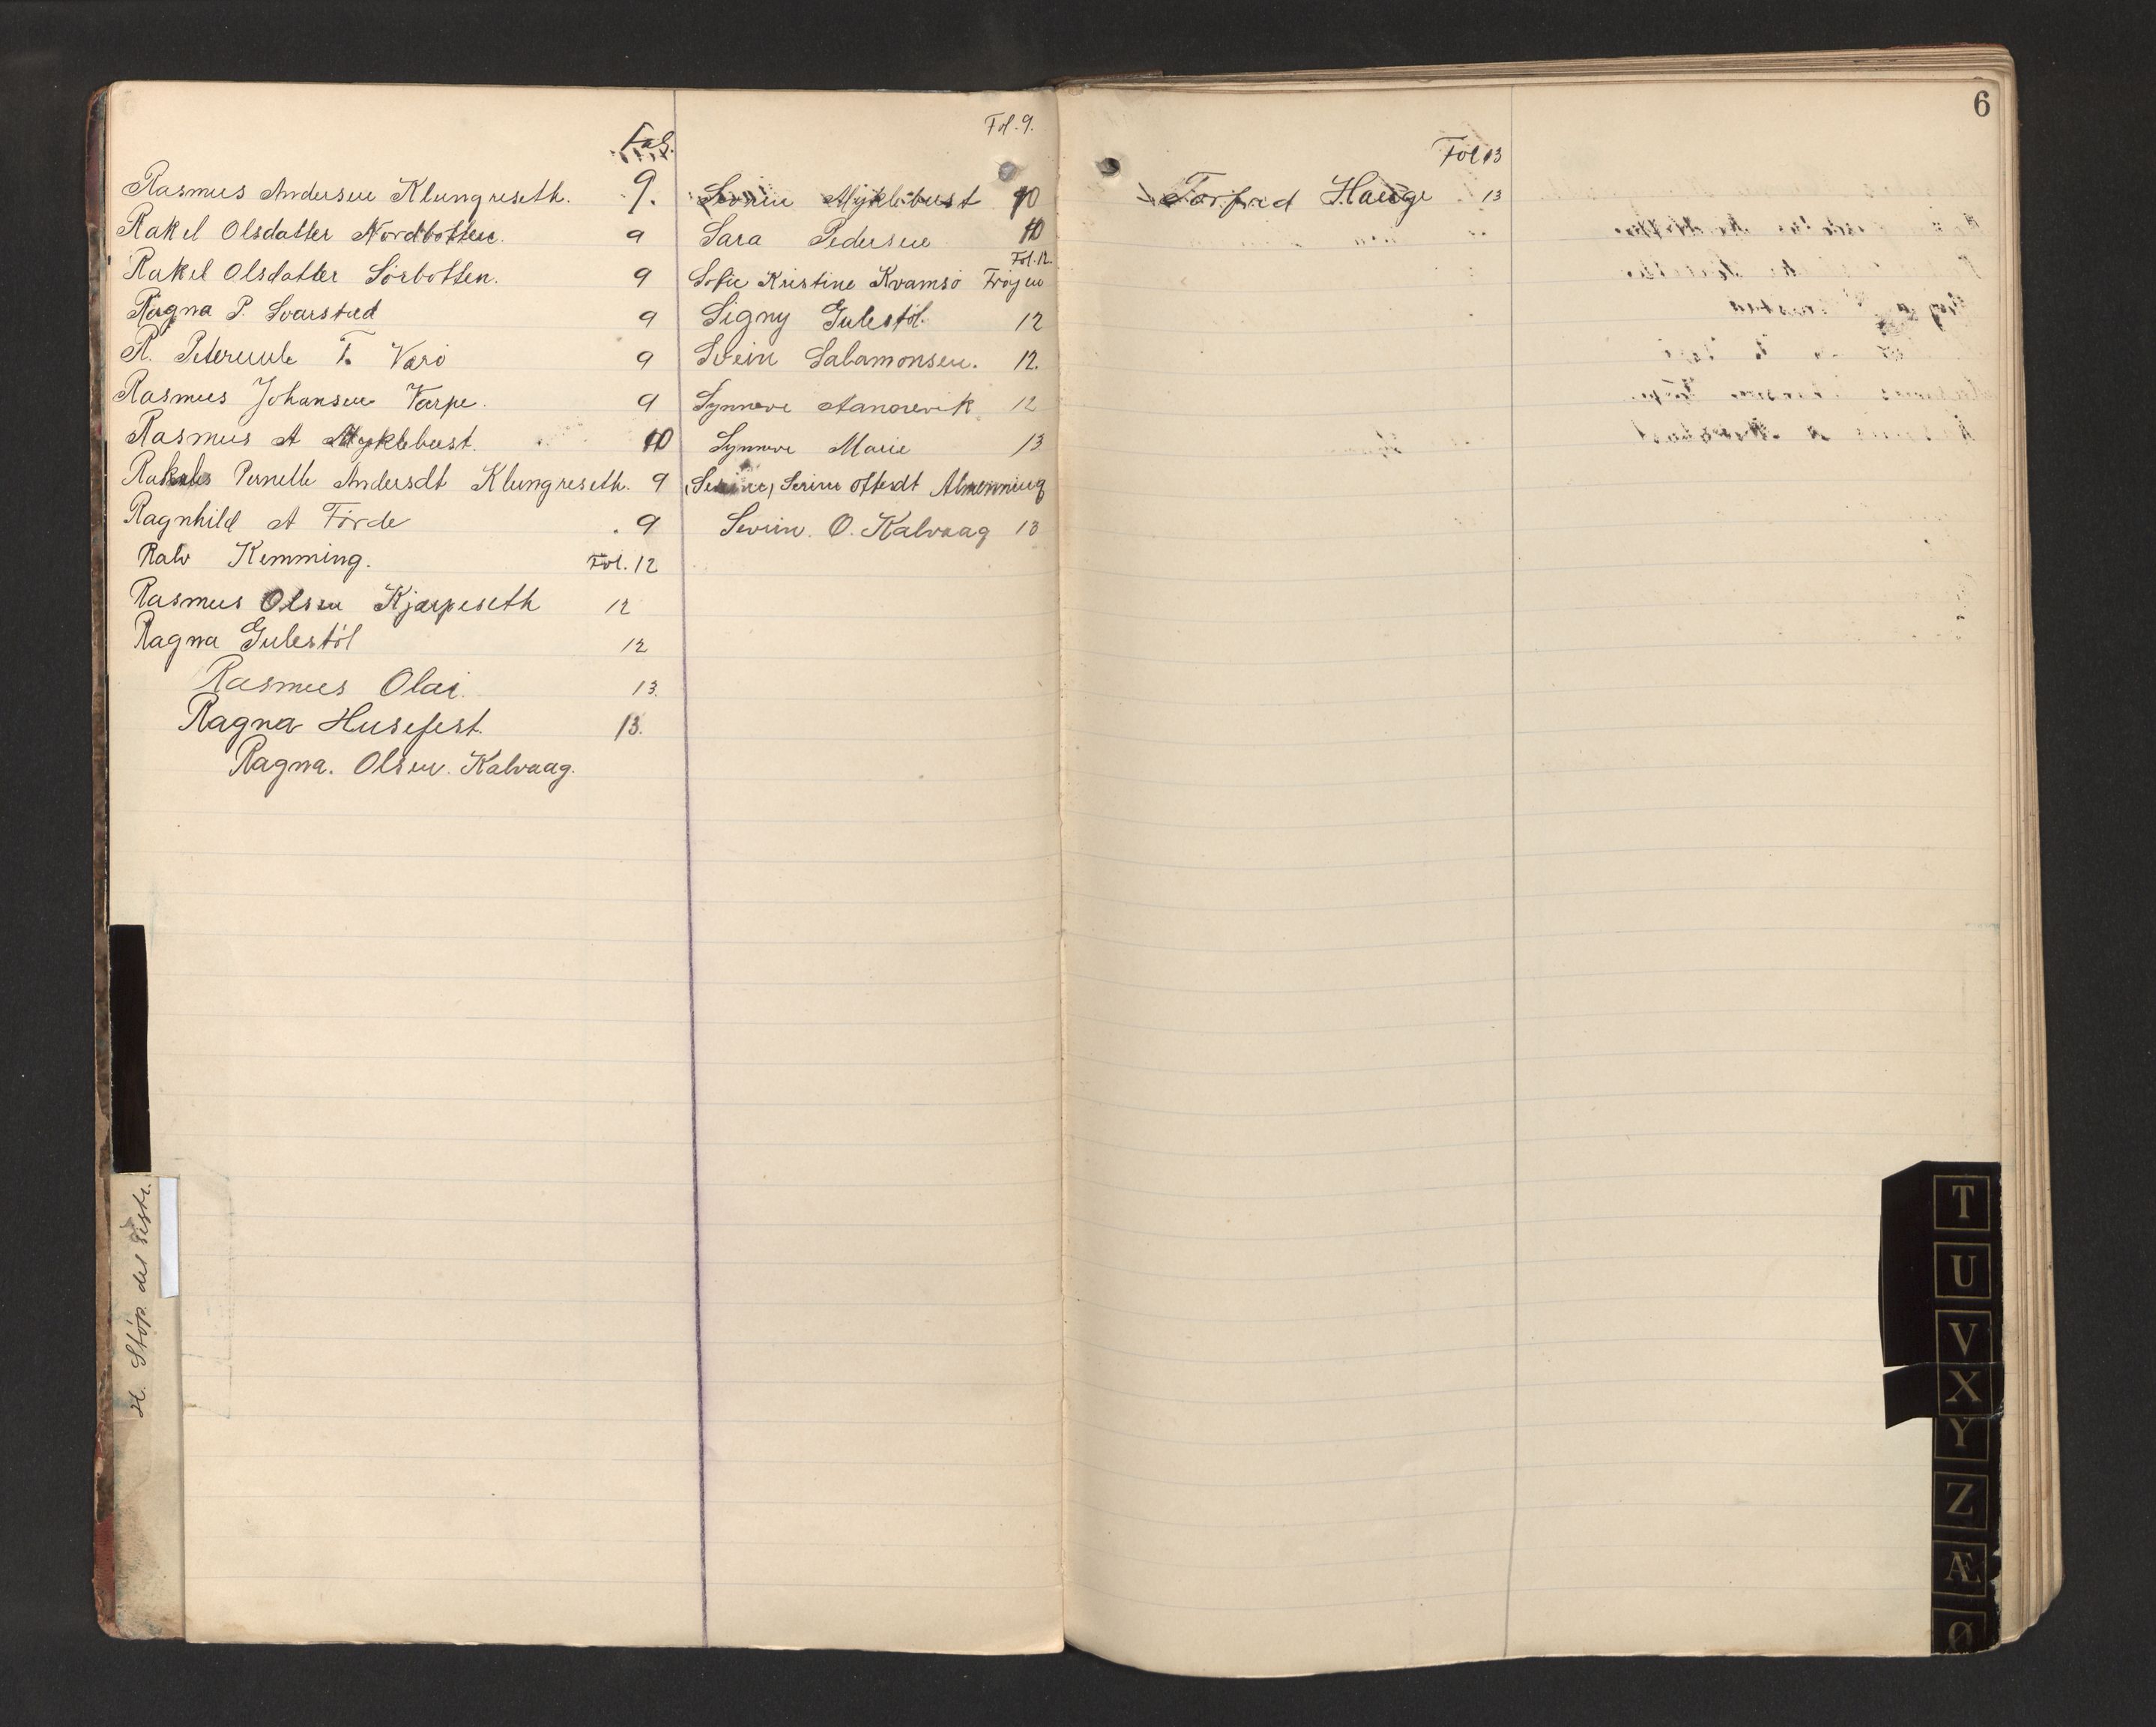 Fol.
Rasmus Andersen Klungreseth. 9.
Rakel Olsdatter Nordbotten. 9
Rakel Olsdatter Sørbotten. 9
Ragna P. Svarstad 9
R. Peternule T. Varø 9
Rasmus Johansen Varpe. 9
Rasmus A Myklebust. 10
Pernelle Andersdt Klungreseth. 9
Ragnhild A Førde 9
Ralv Kemming. Fol. 12
Rasmus Olsen Kjærpeseth 12
Ragna Gulestøl 12
Rasmus Olai. 13.
Ragna Husefest. 13.
Ragna. Olsen. Kalvaag.
H. Støp. del
Fol. 9.
Myklebust 10
Sara Pedersen 10
Fol. 12.
Sofie Kristine Kvamsø Frøjen
Signy Gulestøl. 12
Svein Salamonsen. 12.
Synneve 12
Synneve Marie 13
Serine Almenning
Severin. O. Kalvaag 13
6
Fol 13
Torfred Hauge 13
T
U
V
X
Y
Z
Æ
Ø